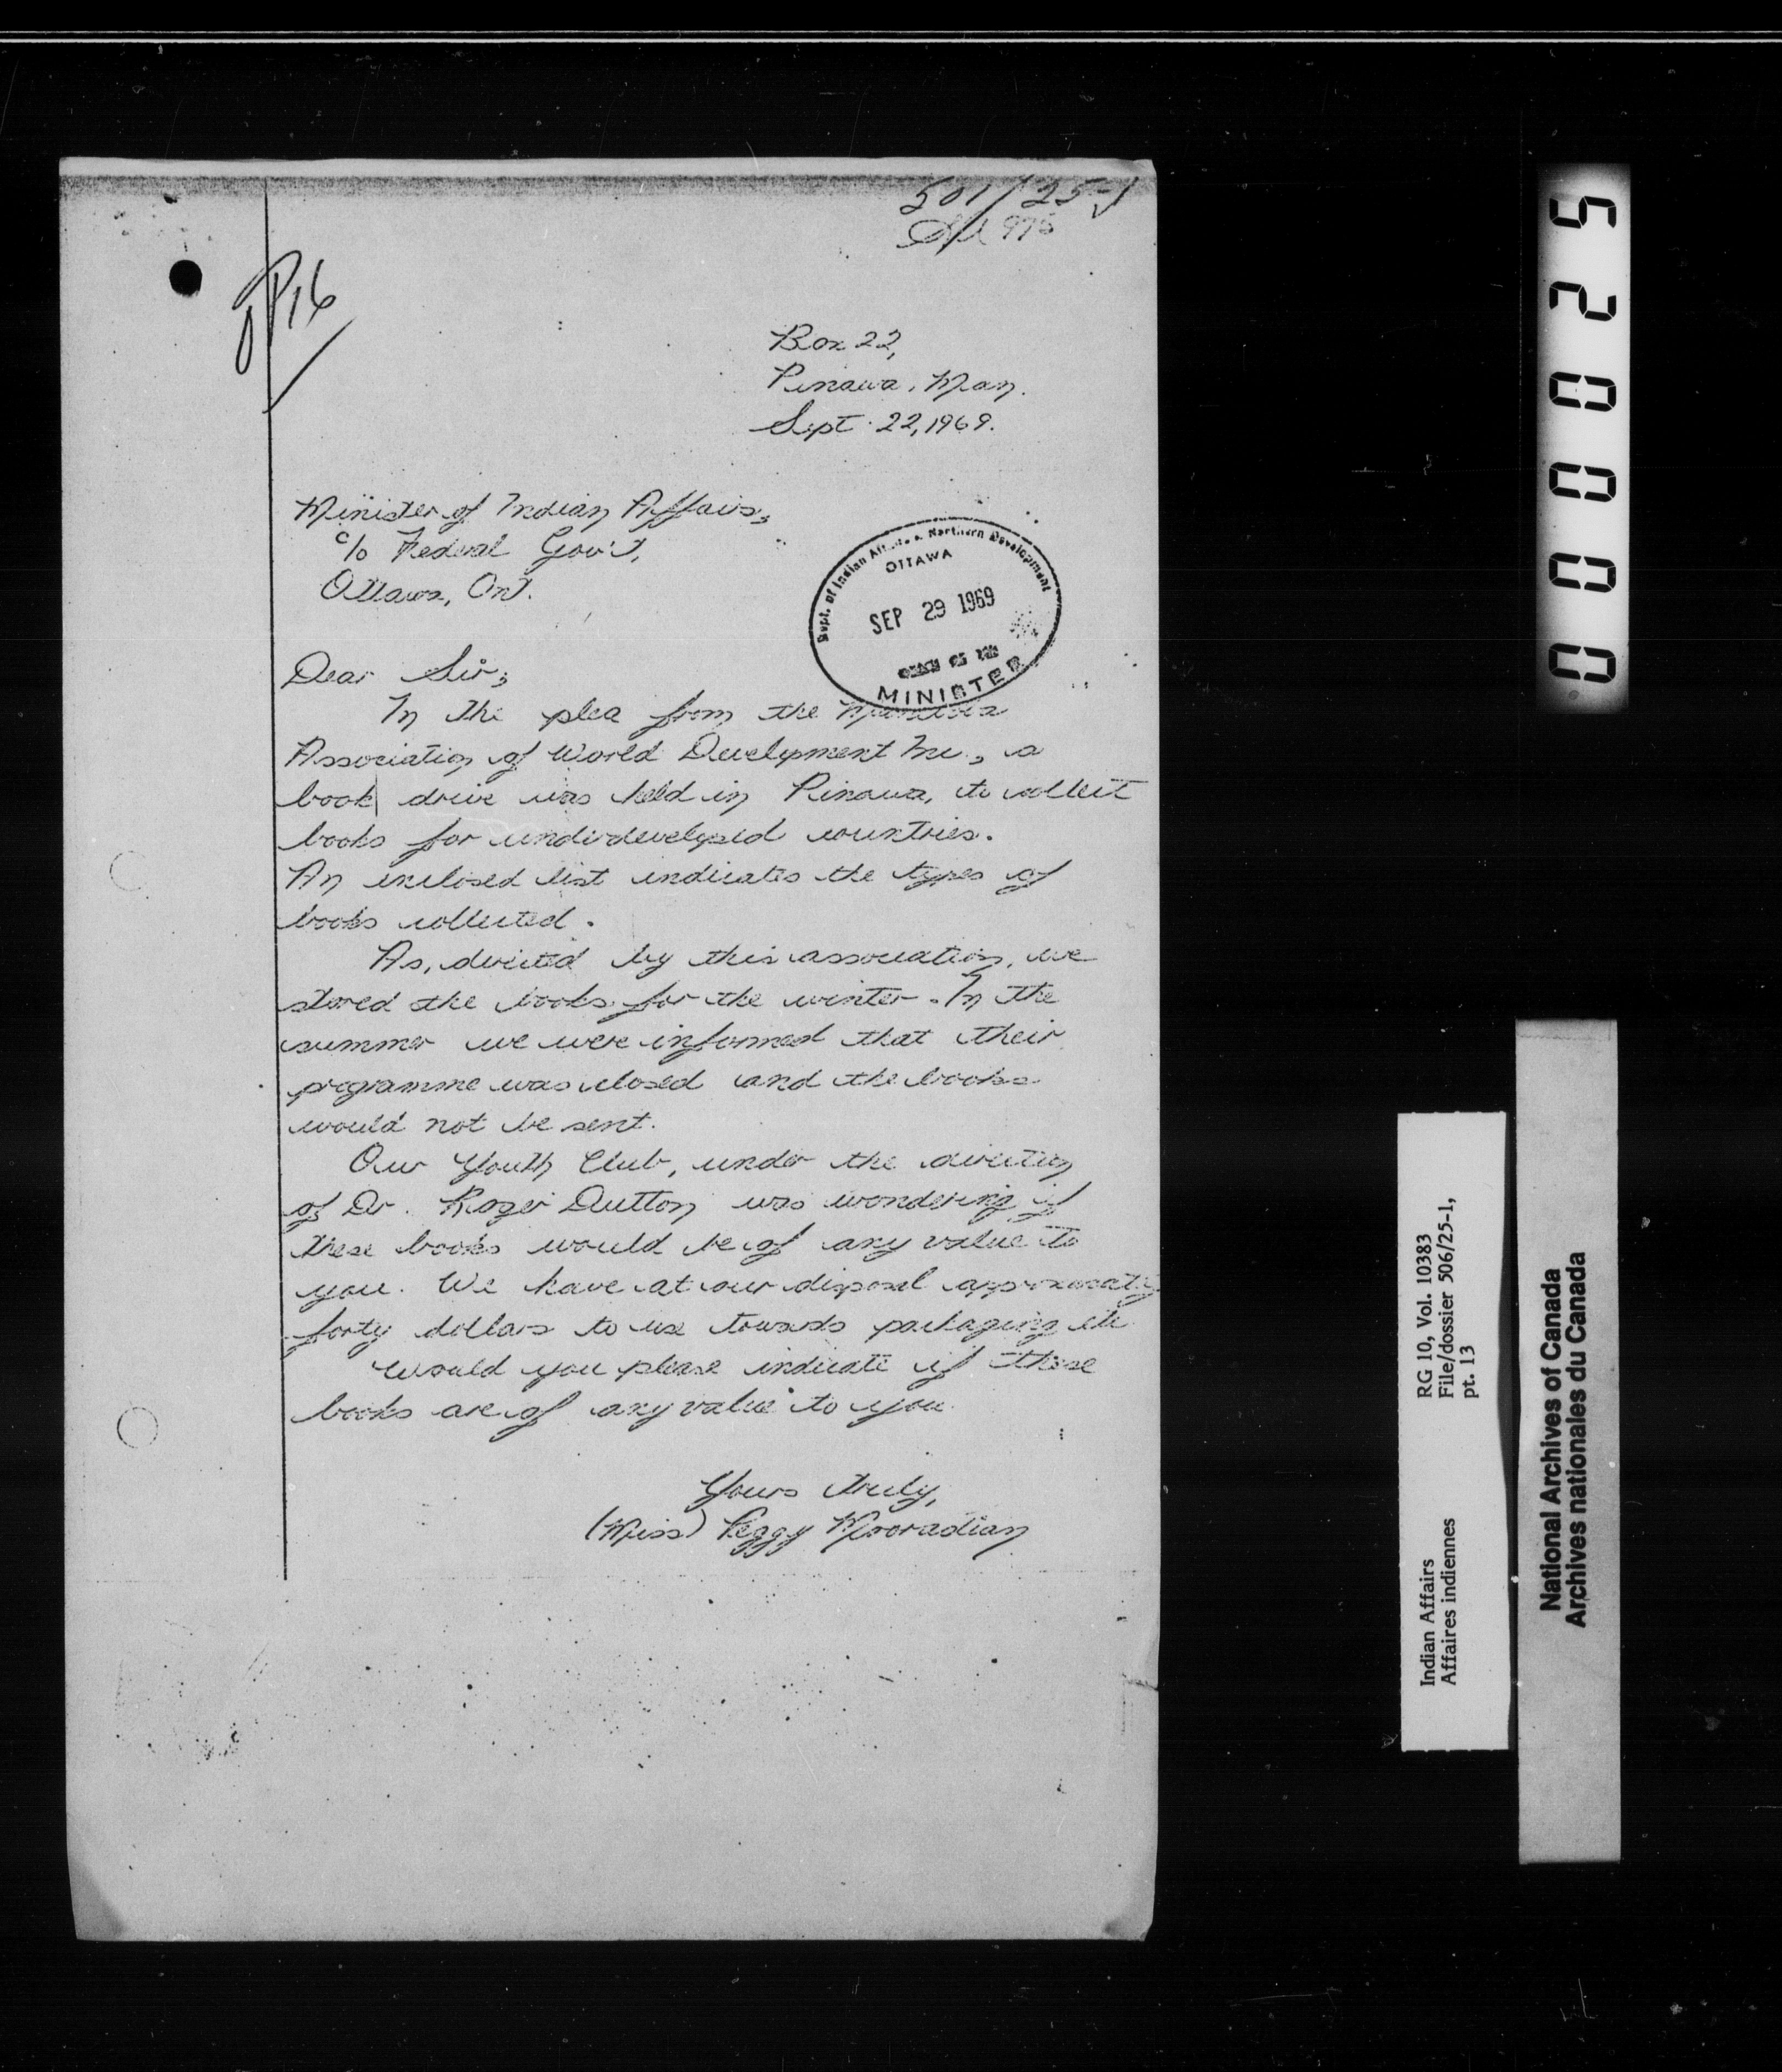 501/25-1
975
JP16
Box 22,
Pinawa, Man.
Sept. 22, 1969.
Minister of Indian Affairs,
c/o Federal Gov't,
Ottawa, Ont.
Dept. of Indian Affairs & Northern Development
OTTAWA
SEP 29 1969
OFFICE OF THE
MINISTER
Dear Sir;
In the plea from the Manitoba
Association of World Development Inc., a
book drive was held in Pinawa, to collect
books for underdeveloped countries.
An enclosed list indicates the types of
books collected.
As, directed by this association, we
stored the books for the winter. In the
summer we were informed that their
programme was closed and the books
would not be sent.
Our Youth Club, under the direction
of Dr. Roger Dutton was wondering if
these books would be of any value to
you. We have at our disposal approximately
forty dollars to use towards packaging etc.
Would you please indicate if these
books are of any value to you.
Yours truly,
(Miss) Peggy Mooradian
000025
Indian Affairs
Affaires indiennes
RG 10, Vol. 10383
File/dossier 506/25-1,
pt. 13
National Archives of Canada
Archives nationales du Canada